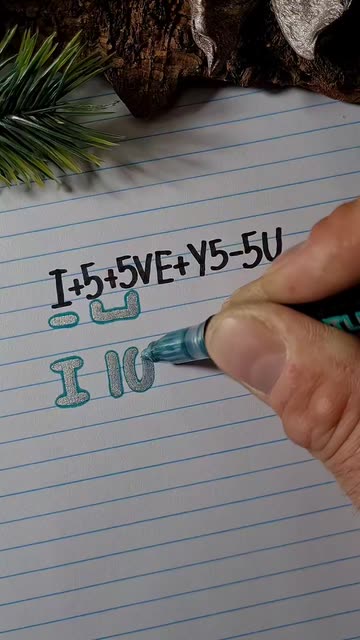 I+5+5VE+Y5-5U
I 10